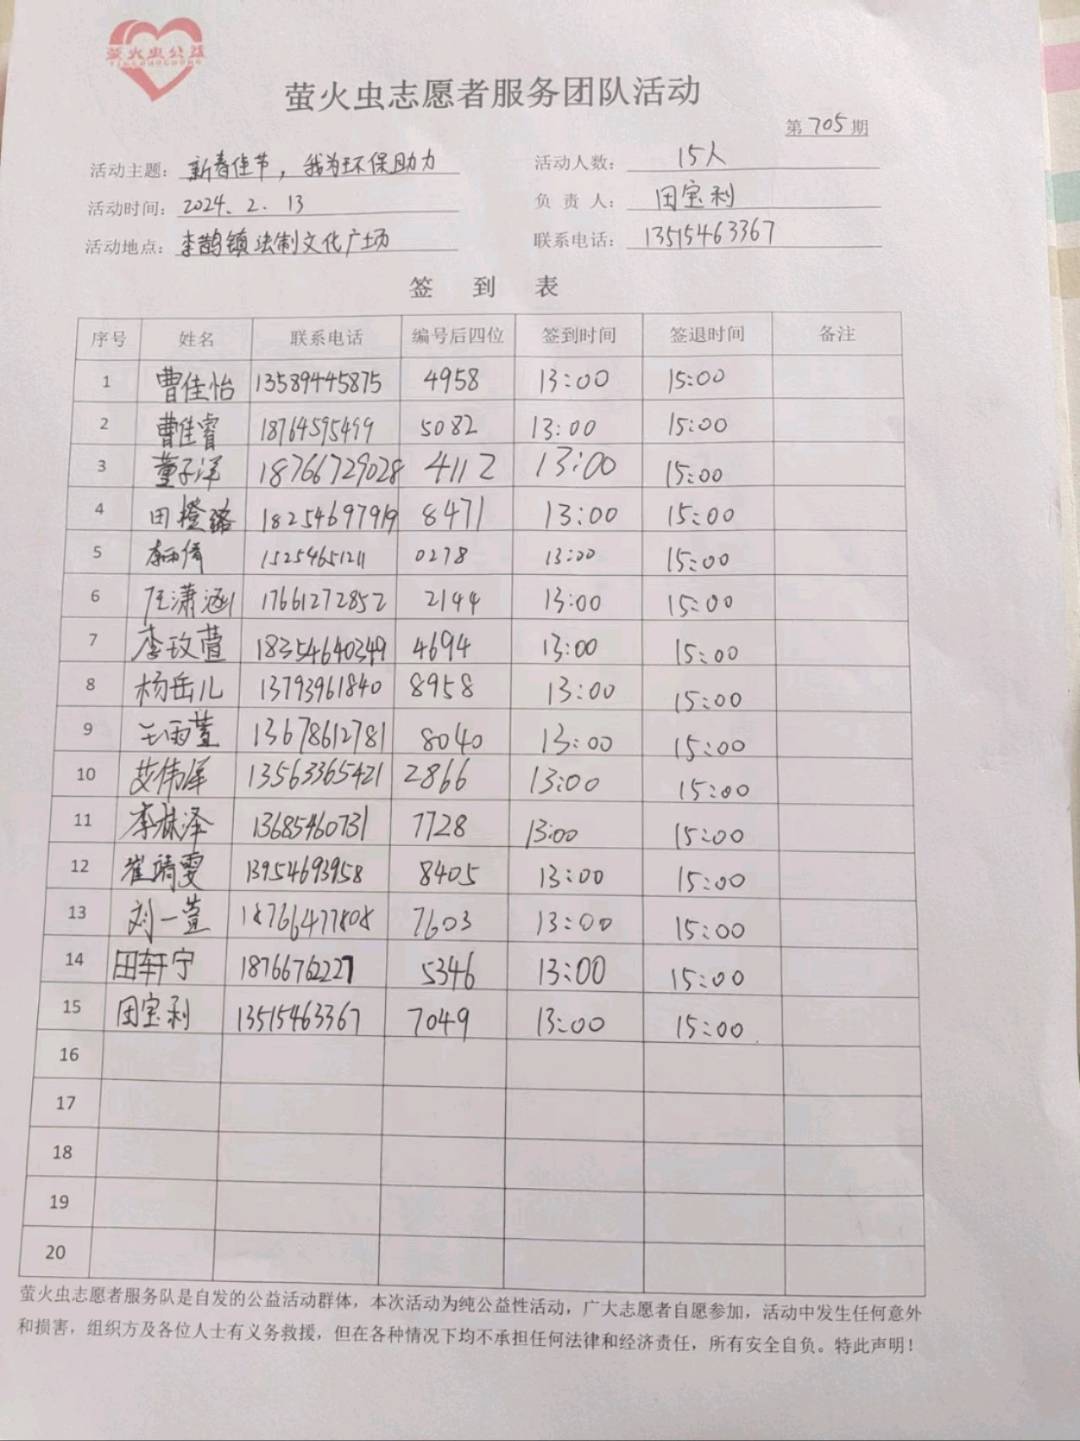 萤火虫公益
YINGHUOCHONG
萤火虫志愿者服务团队活动
第 705 期
活动主题: 新春佳节，我为环保助力 活动人数: 15人
活动时间: 2024.2.13 负 责 人: 田宝利
活动地点: 李鹊镇法制文化广场 联系电话: 13515463367
签 到 表
序号 姓名 联系电话 编号后四位 签到时间 签退时间 备注
1 曹佳怡 13589445875 4958 13:00 15:00
2 曹佳睿 18764595499 5082 13:00 15:00
3 董子洋 18766729028 4112 13:00 15:00
4 田橙璐 18254697919 8471 13:00 15:00
5 李雨倩 15254651211 0278 13:00 15:00
6 潇涵 17661272852 2144 13:00 15:00
7 李玟萱 18354640349 4694 13:00 15:00
8 杨岳儿 13793961840 8958 13:00 15:00
9 王雨萱 13678612781 8040 13:00 15:00
10 艾伟泽 13563365421 2866 13:00 15:00
11 李林泽 13685460731 7728 13:00 15:00
12 崔靖雯 13954693958 8405 13:00 15:00
13 刘一萱 18766477808 7603 13:00 15:00
14 田轩宁 18766762227 5346 13:00 15:00
15 田宝利 13515463367 7049 13:00 15:00
16
17
18
19
20
萤火虫志愿者服务队是自发的公益活动群体，本次活动为纯公益性活动，广大志愿者自愿参加，活动中发生任何意外
和损害，组织方及各位人士有义务救援，但在各种情况下均不承担任何法律和经济责任，所有安全自负。特此声明！